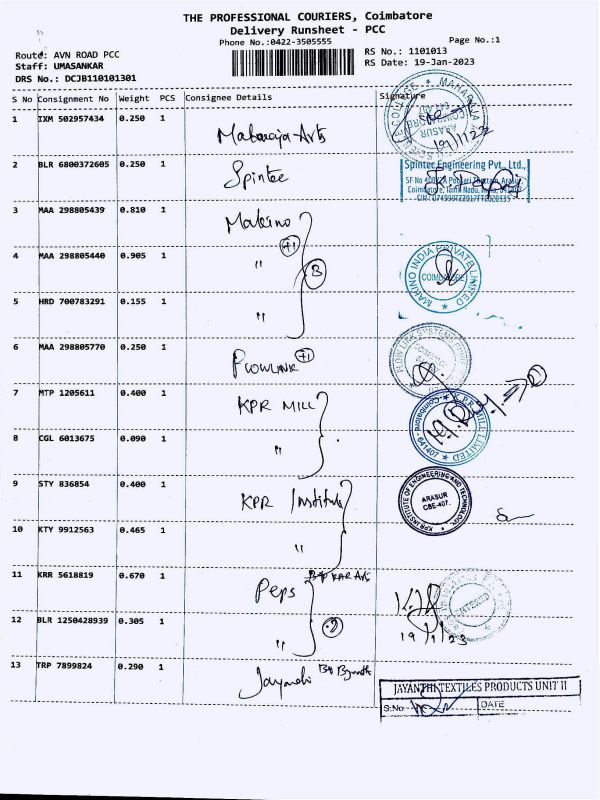 THE PROFESSIONAL COURIERS, Coimbatore
Delivery Runsheet - PCC
Phone No.:0422-3505555
Page No.:1
Route: AVN ROAD PCC
RS No.: 1101013
Staff: UMASANKAR
RS Date: 19-Jan-2023
DRS No.: DCJB110101301
S No Consignment No Weight PCS Consignee Details Signature
1 IXM 502957434 0.250 1 Maharaja Arts
ARASUR
19/1/22
2 BLR 6800372605 0.250 1 Spintec
Spintec Engineering Pvt. Ltd.,
Coimbatore, Tamil Nadu, India,
3 MAA 298805439 0.810 1 Makino
+1
4 MAA 298805440 0.905 1 "
3
MAKINO INDIA PRIVATE LIMITED
5 HRD 700783291 0.155 1 "
6 MAA 298805770 0.250 1 Flowlink +1
7 MTP 1205611 0.400 1 KPR MILL
KPR MILL LIMITED
Coimbatore - 641407
8 CGL 6013675 0.090 1 "
9 STY 836854 0.400 1 KPR Institute
KPR INSTITUTE OF ENGINEERING AND TECHNOLOGY
ARASUR
CBE-407.
10 KTY 9912563 0.465 1 "
11 KRR 5618819 0.670 1 Peps
12 BLR 1250428939 0.305 1 "
19/1/23
13 TRP 7899824 0.290 1 Jayanthi
JAYANTHI TEXTILES PRODUCTS UNIT II
S.No
DATE